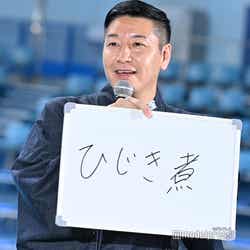 ひじき煮